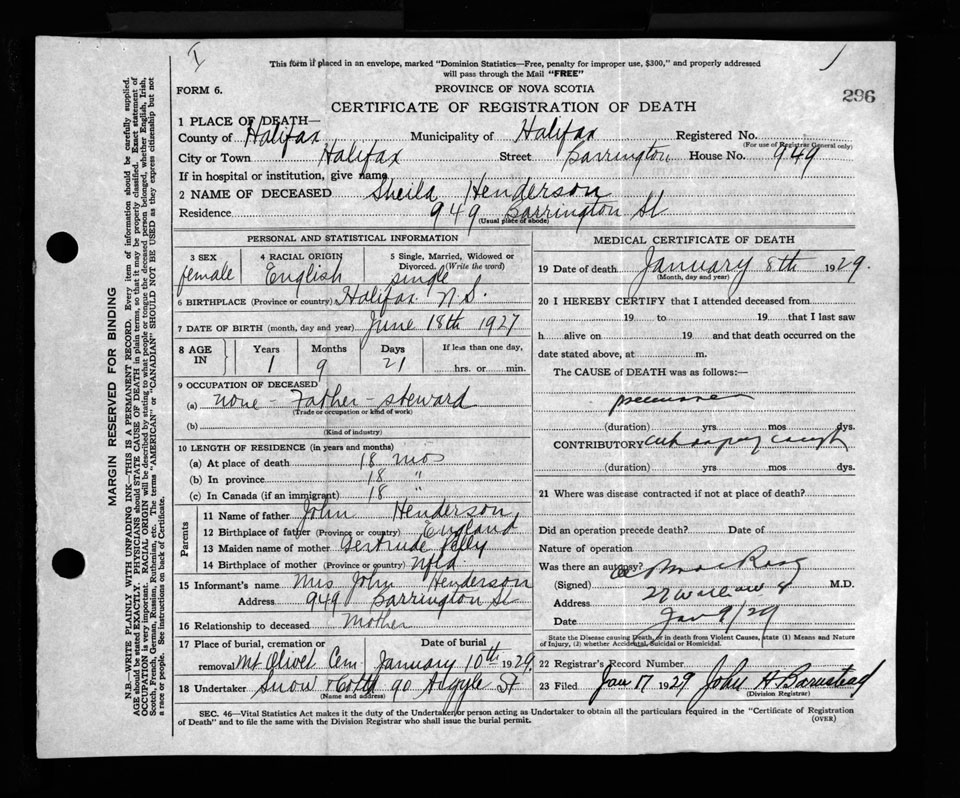 I
This form if placed in an envelope, marked "Dominion Statistics—Free, penalty for improper use, $300," and properly addressed
will pass through the Mail "FREE"
FORM 6.
PROVINCE OF NOVA SCOTIA
296
CERTIFICATE OF REGISTRATION OF DEATH
1 PLACE OF DEATH—
County of Halifax Municipality of Halifax Registered No.
(For use of Registrar General only)
City or Town Halifax Street Barrington House No. 949
If in hospital or institution, give name
2 NAME OF DECEASED Sheila Henderson
Residence 949 Barrington St
(Usual place of abode)
PERSONAL AND STATISTICAL INFORMATION
3 SEX 4 RACIAL ORIGIN 5 Single, Married, Widowed or
Divorced. (Write the word)
female English single
6 BIRTHPLACE (Province or country) Halifax N S.
7 DATE OF BIRTH (month, day and year) June 18th 1927
8 AGE IN Years Months Days If less than one day,
1 9 21 hrs. or min.
9 OCCUPATION OF DECEASED
(a) none - Father - steward
(Trade or occupation or kind of work)
(b)
(Kind of industry)
10 LENGTH OF RESIDENCE (in years and months)
(a) At place of death 18 mos
(b) In province 18 "
(c) In Canada (if an immigrant) 18 "
Parents
11 Name of father John Henderson
12 Birthplace of father (Province or country) England
13 Maiden name of mother Gertrude
14 Birthplace of mother (Province or country) Nfld
15 Informant's name Mrs John Henderson
Address 949 Barrington St
16 Relationship to deceased Mother
17 Place of burial, cremation or Date of burial
removal Mt Olivet Cem January 10th 1929
18 Undertaker Snow & Co Ltd 90 Argyle St
(Name and address)
MEDICAL CERTIFICATE OF DEATH
19 Date of death January 8th 1929.
(Month, day and year)
20 I HEREBY CERTIFY that I attended deceased from
19 to 19 that I last saw
h alive on 19 and that death occurred on the
date stated above, at m.
The CAUSE of DEATH was as follows:—
(duration) yrs mos dys.
CONTRIBUTORY whooping cough
(duration) yrs mos dys.
21 Where was disease contracted if not at place of death?
Did an operation precede death? Date of
Nature of operation
Was there an autopsy?
(Signed) M.D.
Address
Date Jan 9/29
State the Disease causing Death, or in death from Violent Causes, state (1) Means and Nature
of Injury, (2) whether Accidental, Suicidal or Homicidal.
22 Registrar's Record Number
23 Filed Jan 17 1929 John A Barnstead
(Division Registrar)
SEC. 46—Vital Statistics Act makes it the duty of the Undertaker or person acting as Undertaker to obtain all the particulars required in the "Certificate of Registration
of Death" and to file the same with the Division Registrar who shall issue the burial permit.
(OVER)
MARGIN RESERVED FOR BINDING
N.B.—WRITE PLAINLY WITH UNFADING INK—THIS IS A PERMANENT RECORD. Every item of information should be carefully supplied.
AGE should be stated EXACTLY. PHYSICIANS should STATE CAUSE OF DEATH in plain terms, so that it may be properly classified. Exact statement of
OCCUPATION is very important. RACIAL ORIGIN will be described by stating to what people or tongue the deceased person belonged, whether English, Irish,
Scotch, French, German, Russian, Ruthenian, etc. The terms "AMERICAN" or "CANADIAN" SHOULD NOT BE USED as they express citizenship but not
a race or people. See instructions on back of Certificate.